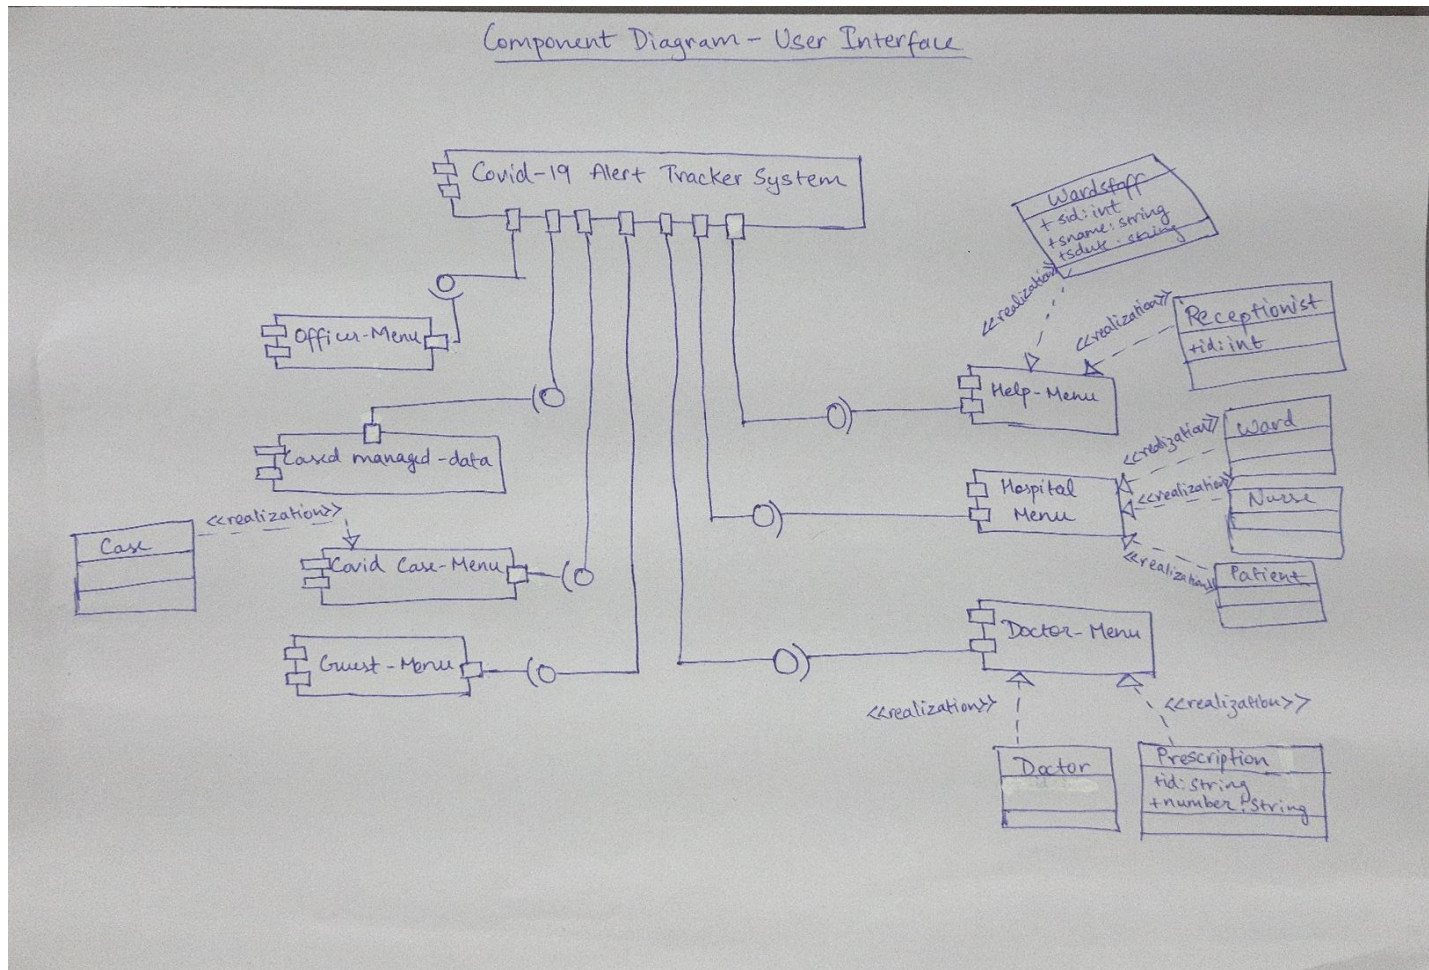 Component Diagram - User Interface
Covid-19 Alert Tracker System
Wardstaff
+ sid: int
+sname: string
+sdute: string
<<realization>>
<<realization>>
Receptionist
+id: int
Officer-Menu
Help-Menu
Cased managed-data
<<realization>>
Ward
Hospital
Menu
<<realization>>
Nurse
<<realization>>
Patient
<<realization>>
Case
Covid Case-Menu
Guest-Menu
Doctor-Menu
<<realization>>
<<realization>>
Doctor
Prescription
+id: string
+number: String